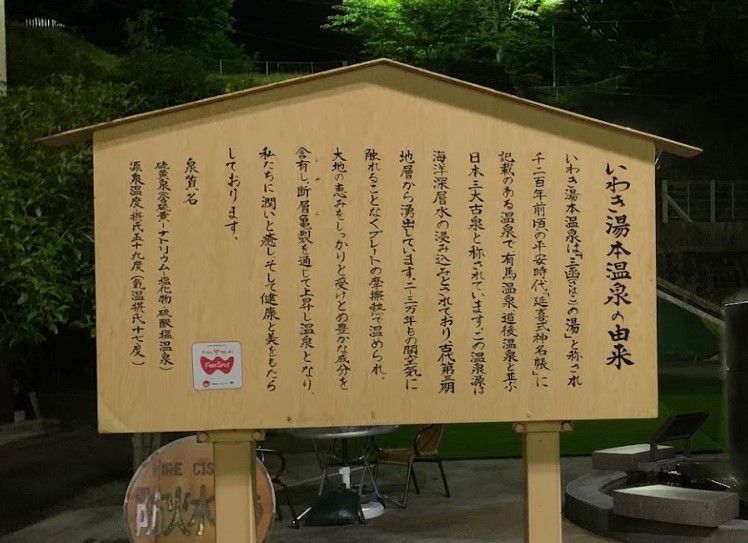 いわき湯本温泉の由来
いわき湯本温泉は、「三函さはこの湯」と称され
千二百年前頃の平安時代、「延喜式神名帳」に
記載のある温泉で、有馬温泉、道後温泉と並ぶ
日本三大古泉と称されています。この温泉源は
海洋深層水の浸み込みとされており、古代第三期
地層から湧出しています。二〜三万年もの間空気に
触れることなくプレートの摩擦熱で温められ、
大地の恵みをしっかりと受けとめ豊かな成分を
含有し、断層亀裂を通じて上昇し温泉となり、
私たちに潤いと癒し、そして健康と美をもたら
しております。
泉質名
硫黄泉(含硫黄-ナトリウム-塩化物・硫酸塩温泉)
源泉温度 摂氏五十九度(気温摂氏十七度)
Free Spot
FIRE CIS
防火水